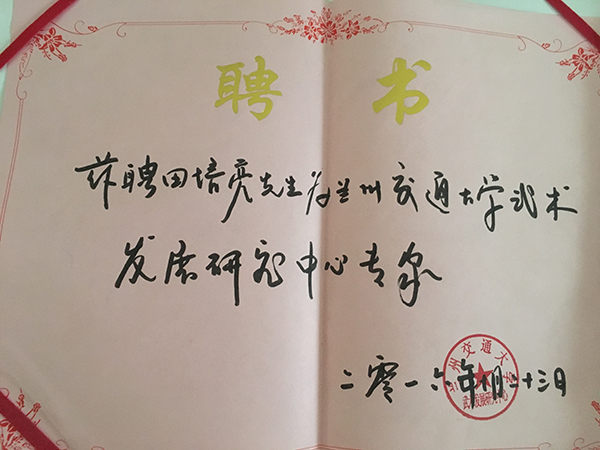 聘书
兹聘田培亮先生为兰州交通大学武术
发展研究中心专家
二零一六年十月二十三日
兰州交通大学
武术发展研究中心